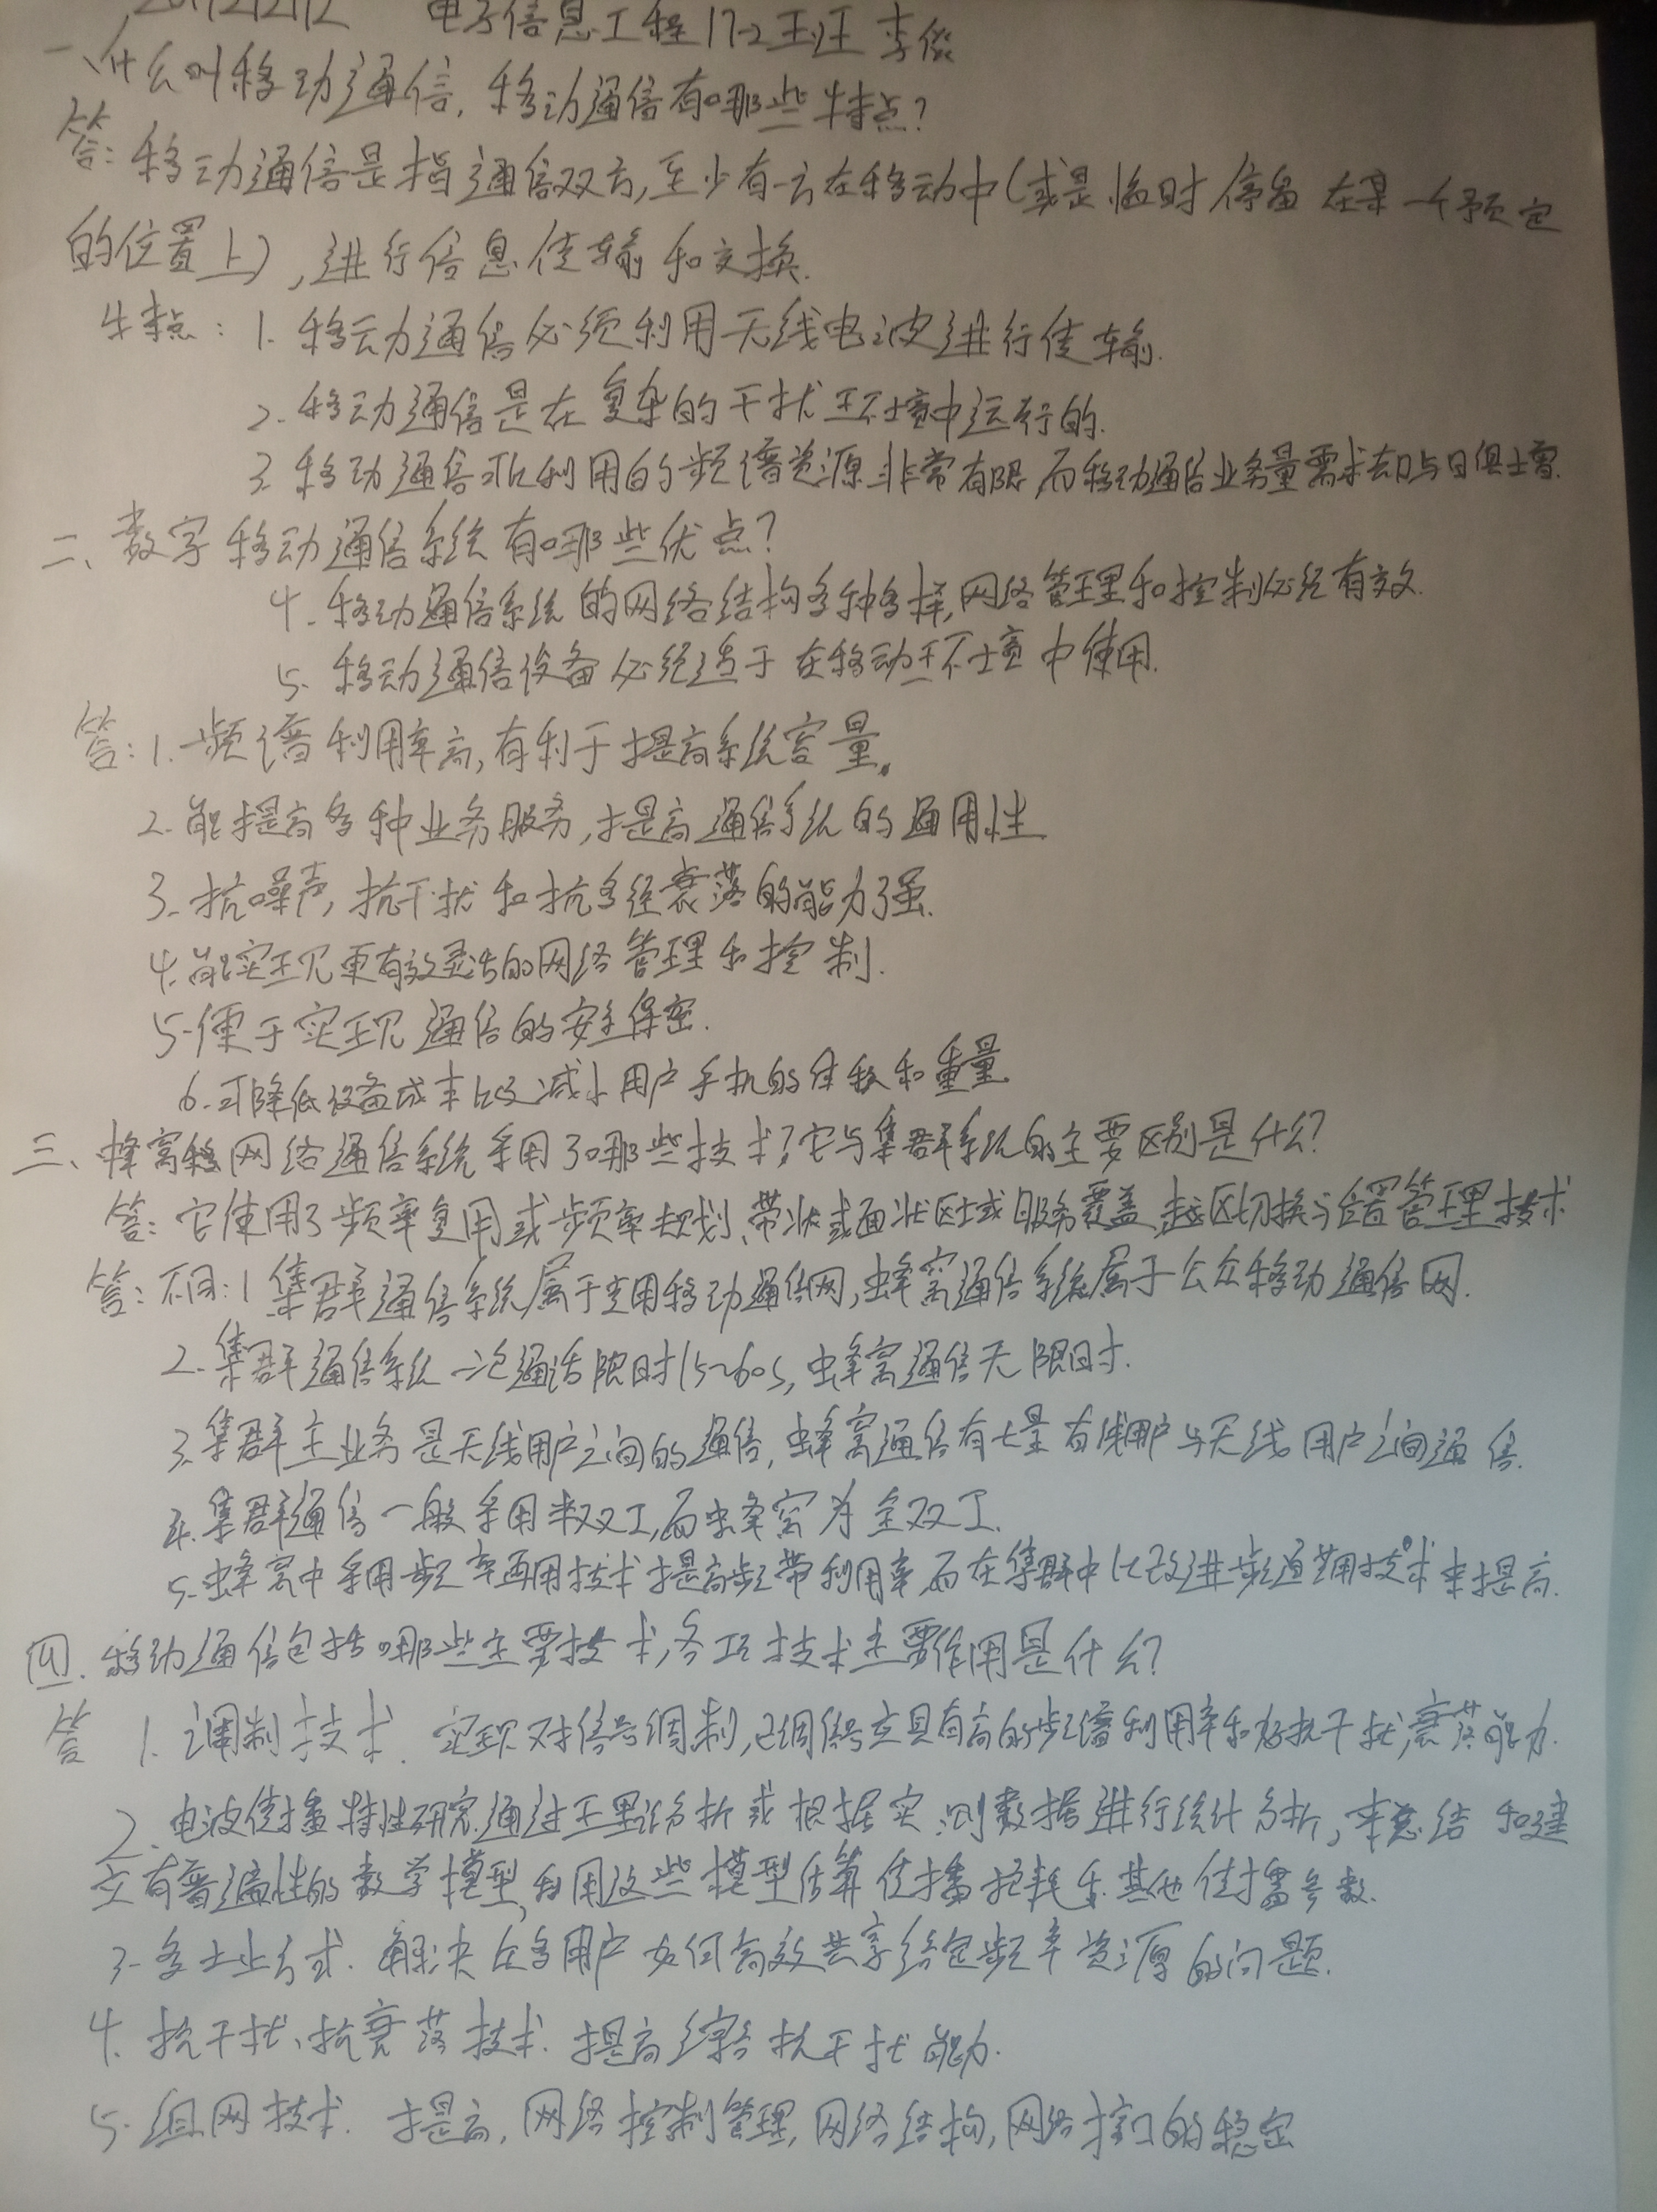 电子信息工程17-2班 李俊
一、什么叫移动通信，移动通信有哪些特点？
答：移动通信是指通信双方，至少有一方在移动中（或是临时停留在某一个预定
的位置上），进行信息传输和交换.
特点：1. 移动通信必须利用无线电波进行传输.
2. 移动通信是在复杂的干扰环境中运行的.
3. 移动通信可以利用的频谱资源非常有限，而移动通信业务量需求却与日俱增.
二、数字移动通信系统有哪些优点？
4. 移动通信系统的网络结构多种多样，网络管理和控制必须有效.
5. 移动通信设备必须适于在移动环境中使用.
答：1. 频谱利用率高，有利于提高系统容量。
2. 能提高多种业务服务，提高通信系统的通用性
3. 抗噪声，抗干扰和抗多径衰落的能力强.
4. 能实现更有效灵活的网络管理和控制.
5. 便于实现通信的安全保密.
6. 可降低设备成本以及减小用户手机的体积和重量
三、蜂窝移网络通信系统采用了哪些技术？它与集群系统的主要区别是什么？
答：它使用了频率复用或频率规划、带状或面状区域服务覆盖、越区切换与位置管理技术
答：不同：1 集群通信系统属于专用移动通信网，蜂窝通信系统属于公众移动通信网.
2. 集群通信系统一次通话限时15~60s，蜂窝通信无限时.
3. 集群主业务是无线用户之间的通信，蜂窝通信有大量有线用户与无线用户之间通信.
4. 集群通信一般采用半双工，而蜂窝为全双工.
5. 蜂窝中采用频率再用技术提高频带利用率，而在集群中以改进频道共用技术来提高.
四. 移动通信包括哪些主要技术，各项技术主要作用是什么？
答 1. 调制技术. 实现对信号调制，已调信号应具有高的频谱利用率和好抗干扰，衰落能力.
2. 电波传播特性研究. 通过理论分析或根据实测数据进行统计分析，来总结和建
立有普遍性的数学模型，利用这些模型估算传播损耗和其他传播参数.
3. 多址方式. 解决在多用户如何高效共享给定频率资源的问题.
4. 抗干扰、抗衰落技术. 提高综合抗干扰能力.
5. 组网技术. 提高，网络控制管理，网络结构，网络接口的稳定